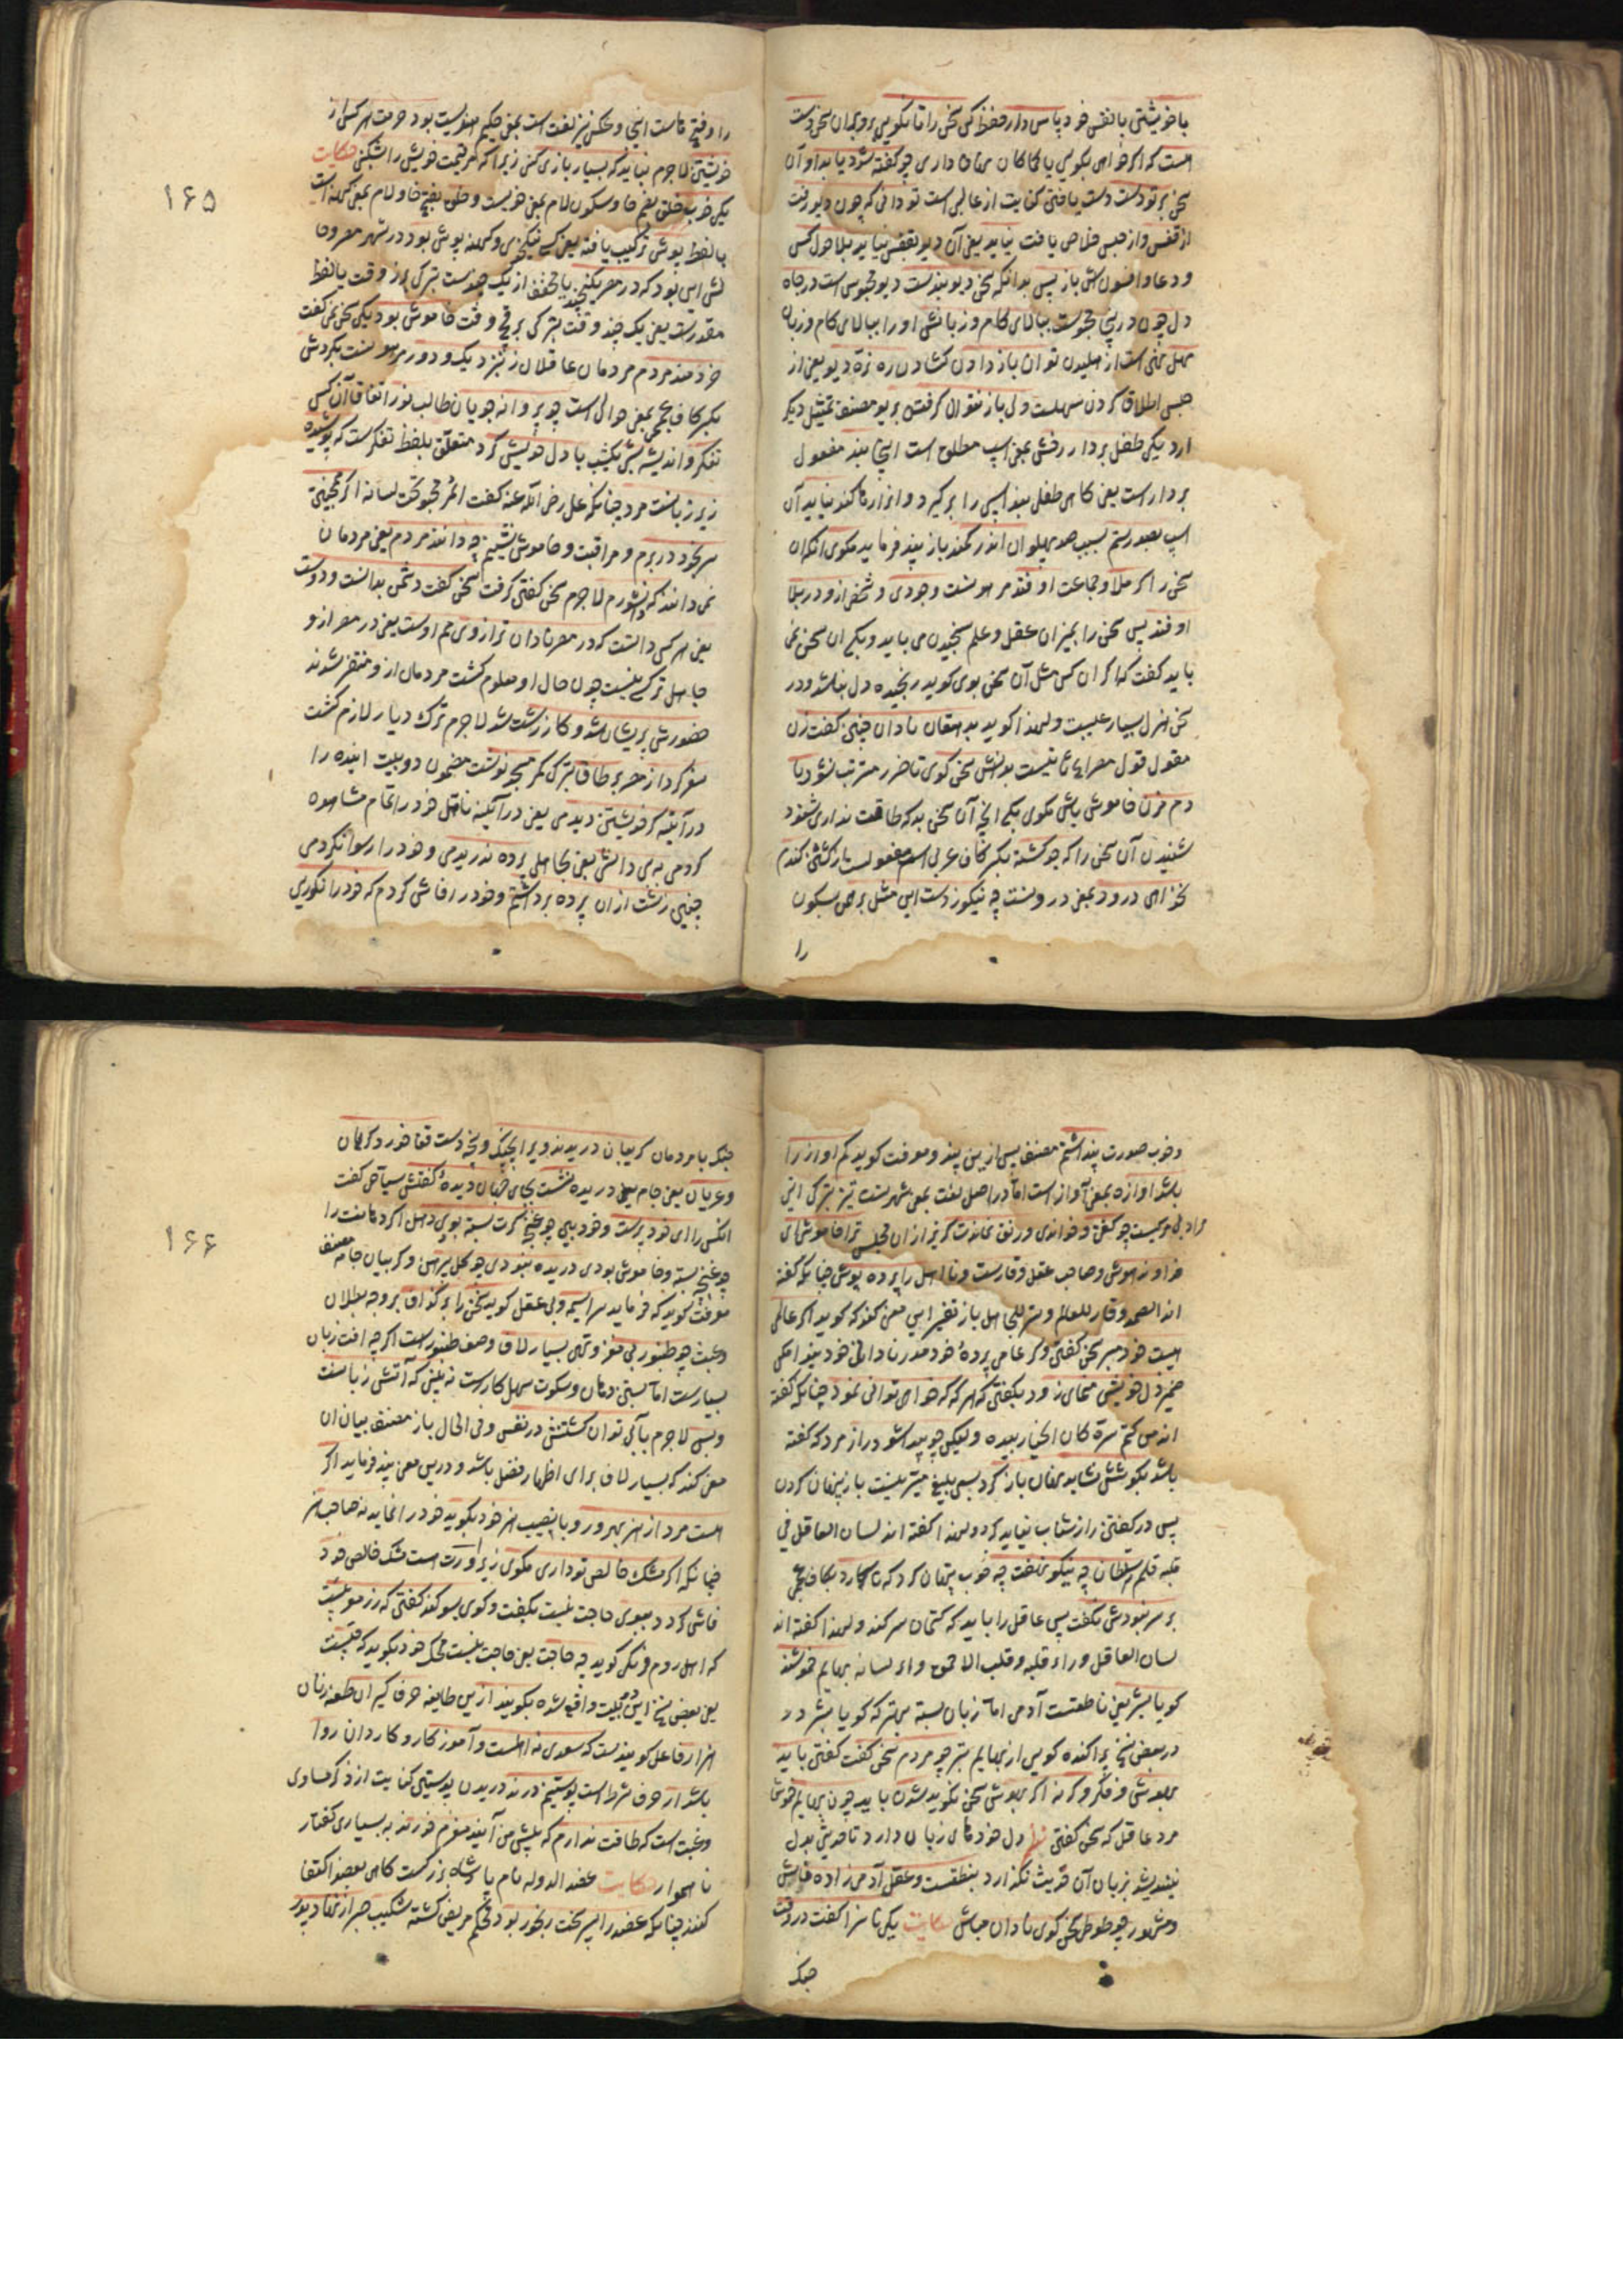 با خویشتن با نفس خود پاس دار حفظ کن سخن را تا نگویی برو بران سخن دست
است که اگر خواهی بگویی یا نگاه داری چو گفته شود یابد او آن
سخن بر تو دست دست یافتن کنایت از عالبی است تو دانی که چون دیو رفت
از قفس و از حبس خلاص یافت نیاید یعنی آن دیو بقفس نیاید بلا حول کس
و دعا و افسون اش باز پس بدانکه سخن دیو بندست دیو محبوس است در چاه
دل چون در ینجا محبوست ببالای کام و زبانش او را ببالای کام و زبان
سهل است از توان باز دادن گشادن ره نره دیو یعنی از
حبس اطلاق کردن سهلست ولی باز نتوان گرفتن بریو مصنف تمثیل دیگر
آرد یکی طفل بردارد رخش بمعنی اسپ مطلق است اینجا بند مفعول
بردار است یعنی گاهی طفلی بند اسپی را بر گیرد و نیاید آن
اسپ بصد رستم بسبب صد پهلوان اندر کمند باز پند فرماید مگوی آنکه آن
سخن را اگر ملا و جماعت او فتد وجودی و شخص ازو در بلا
او فتد پس سخن را بمیزان عقل و علم سنجیدن می باید و یکی آن سخن نمی
باید گفت که اگر آن کس مثل آن سخن بوی گوید رنجیده دل نباشد و در
سخن هزل بسیار عیبست ولهذا گوید بدهقان نادان چنین گفت زن
مقول قول مصراع ثانیست بدانش سخن گوی تا ضرر مترتب نشود یا
دم مزن خاموش باش مگوی یکی الخ آن سخن بد که طاقت نداری شنود
شنیدن آن سخن را که جو کشته بکسر کاف عربی اسم مفعولست از کشتن گندم
نخواهی درود بمعنی درونست چه نیکو زدست این مثل برهمن بسکون
را
را و فتح هاست اینجا و عکس نیز لغت است بمعنی حکیم هنودست بود حرمت هر کس از
خویشتن لاجرم نباید که بسیار بازی کنی زیرا که مر قیمت خویش را شکنی حکایت
یکی خوب خلق بضم خا و سکون لام بمعنی خویست و خلق بفتح خا و لام بمعنی کهنه است
با لفظ پوش ترکیب یافته یعنی کسی نیکخوی و کهنه پوش بود در شهر معروف
لش این بود که در مصر یکچند با مخفف از یک چندست بترکی بر از وقت با لفظ
مقدرست یعنی یک چند وقت بترکی بر قچ وقت خاموش بود یکی سخن نمی گفت
خردمند مردم مردمان عاقلان ز نزدیک و دور بگردش
بکسر کاف عجمی بمعنی حوالی است چو پروانه جویان طالب نور اتفاقا آن کس
تفکر و اندیشه شبی بکشب با دل خویش کرد متعلق بلفظ تفکرست که پوشیده
زیر زبانست مرد چنانکه علی رضی الله عنه گفت المرء مخبو تحت لسانه اگر همچنین
سر بخود در برم و مراقبت و خاموش نشینم چه دانند مردم یعنی مردمان
نمی دانند که دانشورم لاجرم سخن گفتن گرفت سخن گفت و دشمن بدانست و دوست
یعنی هر کس دانست که در مصر نادان تر از وی هم اوست یعنی در مصر ازو
جاهل تر کسی نیست چون حال او معلوم گشت مردمان از و متنفر شدند
حضورش پریشان شد و کار زشت شد لاجرم ترک دیار لازم گشت
سفر کرد از مصر بر طاق بترکی کمر مسجد نوشت مضمون دو بیت آینده را
در آیینه گر خویشتن دیدمی یعنی در آیینه تامل خود را تمام مشاهده
کردمی به بی دانش یعنی بجاهلی پرده ندریدمی و خود را رسوا نکردمی
چنین زشت از ان پرده برداشتم و خود را فاش کردم که خود را نکوروی
۱۶۵
و خوب صورت پنداشتم مصنف پس ازین پند و معرفت گوید کم آواز را
باشد آوازه بمعنی آواز است اما در اصل لغت بمعنی شهرتست تیز بترکی
مراد چو گفتی و خواندی و رونق نماندت گریز از ان مجلس ترا خاموشی ای
خداوند هوش و صاحب عقل وقارست و نا اهل را پرده پوش چنانکه گفته
اند الصمت وقار للعالم و ستر للجاهل باز تقریر این معنی کند که گوید اگر عالمی
هیبت خود مبر سخن گفتن و گر عامی پرده خود مدر نادانی خود
ضمیر دل خویش منمای زود بگفتن که هر که که خواهی توانی نمود چنانکه گفته
اند من کتم سره کان الخیار بیده ولیکن چو پیدا شود راز مرد که گفته
باشد بکوشش نشاید نهان باز کرد بسعی بلیغ میسر نیست باز پنهان کردن
پس در گفتن راز شتاب نباید کرد ولهذا گفته اند لسان العاقل فی
قلبه قلم سر سلطان چه نیکو نهفت چه خوب پنهان کرد که تا کارد بکاف عجمی
بر سر نبودش نگفت پس عاقل را باید که کتمان سر کند ولهذا گفته اند
لسان العاقل وراء قلبه و قلب الاحمق وراء لسانه بهایم خموشند
گویا بشر یعنی ناطقست آدمی اما زبان بسته بهتر که گویا بشر
در بعضی نسخ پراکنده گوی از بهایم بتر چو مردم سخن گفت گفتن باید
بهوش و فکر و گر نه اگر بهوش سخن نگوید شدن باید چون بهایم خموش
مرد عاقل که سخن گفتن دل خود های زبان دارد تا حدیث بدل
نیندیشد بزبان آن حدیث نگذارد بنطقست و عقل آدمی زاده فاش
و مشهور چو طوطی سخن گوی نادان مباش حکایت یکی ناسزا گفت در وقت
جنگ
جنگ با مردمان گریبان دریدند ویرا بچنگ و پنجه دست قفا خورد گریان
و عریان یعنی جامه دریده نشست جهان دیده گفتش سیاحی گفت
آنکس را ای خود پرست و خود بین چو غنچه گرت بسته بودی دهان اگر دهانت را
چو غنچه بسته و خاموش بودی دریده نبودی چو گل پیرهن و گریبان جامه مصنف
معرفت گوید که فرماید سراسیمه و بی عقل گوید سخن را بر گزاف بر وجه بطلان
و عبث چو طنبور بی مغز و تهی بسیار لاف وصف طنبور است اگر چه آفت زبان
بسیارست اما بستن دهان و سکوت سهل کارست نه بینی که آتش زبانست
و بس لاجرم بآبی توان کشتنش در نفس و فی الحال باز مصنف بیان آن
معنی کند که بسیار لاف برای اظهار فضل باشد و درین معنی پند فرماید اگر
هست مرد از هنر بهره ور و با نصیب هنر خود بگوید خود را نماید نه صاحب هنر
چنانکه اگر مشک خالص تو داری مگوی زیرا ورت است مشک خالص خود
فاش گردد ببوی حاجت نیست بگفت و گوی بسوگند گفتن که زر مغربیست
که اهل روم فرنگی گوید چه حاجت یعنی حاجت نیست محک خود بگوید که چیست
یعنی بعضی نسخ این دو بیت واقع شده بگویند ازین طایفه حرف گیران طعنه زنان
هزار فاعل گویندست که سعدی نه اهلست و آموزکار و کاردان روا
باشد ار حرف شرط است پوستینم درند دریدن پوستین کنایت از ذکر مساوی
و غیبت است که طاقت ندارم که پیش من آیند مغزم خورند به بسیاری گفتار
ناهموار حکایت عضد الدوله نام پادشاه بزرگست گاهی بعضد اکتفا
کنند چنانکه عضد را پسر سخت رنجور بود بحکم مریض گشته شکیب صبر از نهاد پدر
۱۶۶